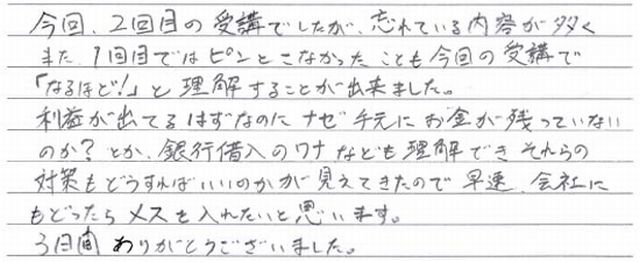 今回、2回目の受講でしたが、忘れている内容が多く
また、1回目ではピンとこなかったことも今回の受講で
「なるほど!」と理解することが出来ました。
利益が出てるはずなのにナゼ手元にお金が残っていない
のか?とか、銀行借入のワナなども理解できそれらの
対策もどうすればいいのかが見えてきたので早速、会社に
もどったらメスを入れたいと思います。
3日間ありがとうございました。